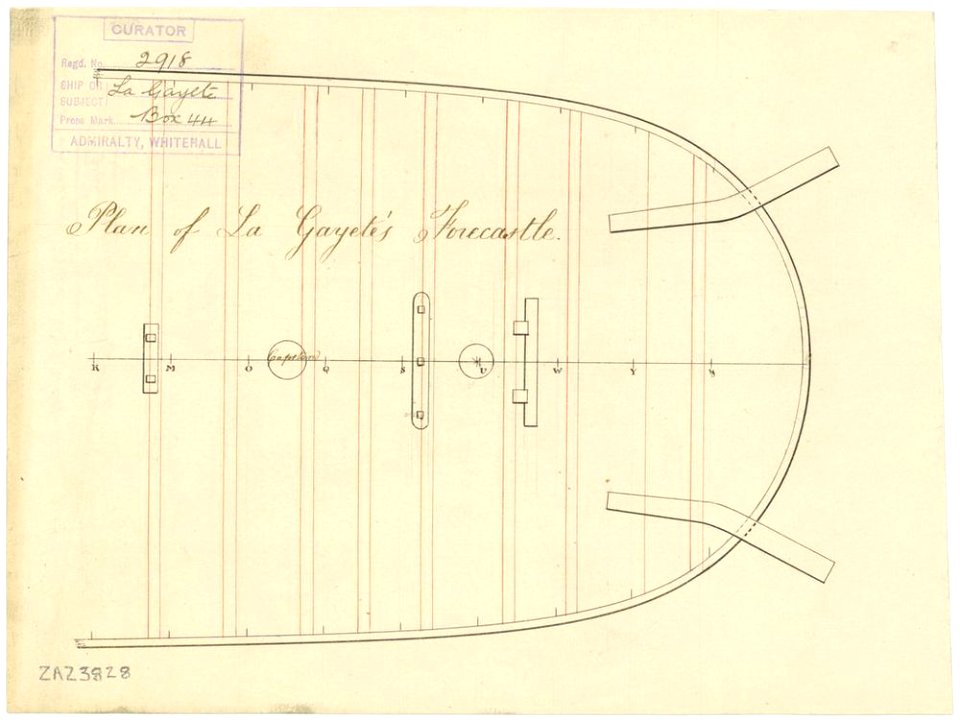 CURATOR
Regd. No. 2918
SHIP OR La Gayeté
SUBJECT:
Press Mark Box 44
ADMIRALTY, WHITEHALL
Plan of La Gayeté's Forecastle.
Capstan
K M O Q S U W Y &
ZAZ3828